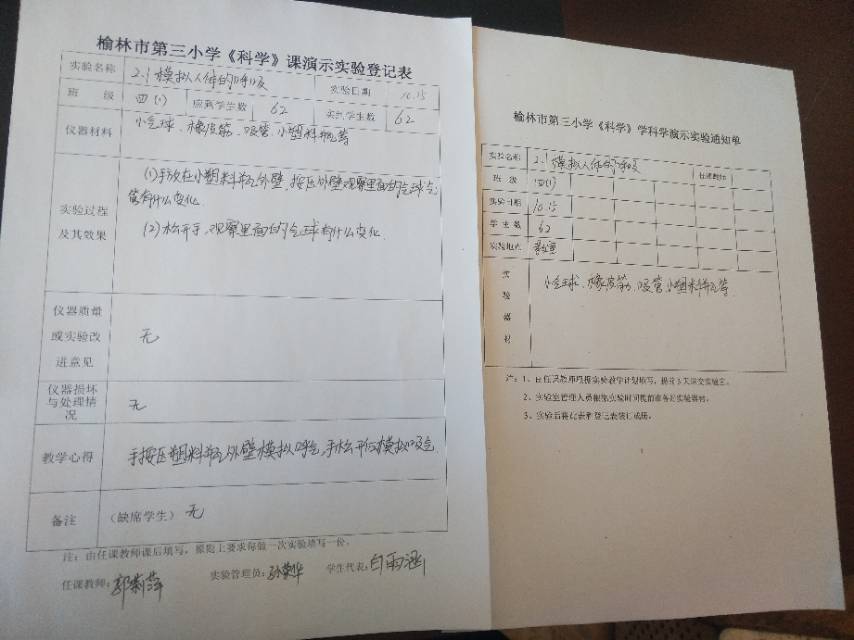 榆林市第三小学《科学》课演示实验登记表
实验名称 2.1模拟人体的呼吸 实验日期 10.15
班 级 四(1) 应到学生数 62 实到学生数 62
仪器材料 小气球、橡皮筋、吸管、小塑料瓶等
实验过程及其效果
(1)手放在小塑料瓶外壁,按压外壁观察里面的气球会
有什么变化
(2)松开手,观察里面的气球有什么变化
仪器质量
或实验改 无
进意见
仪器损坏
与处理情 无
况
教学心得 手按压塑料瓶外壁模拟呼气,手松开后模拟吸气
备注 (缺席学生) 无
注:由任课教师课后填写,原则上要求每做一次实验填写一份。
任课教师: 实验管理员: 学生代表:白雨涵
榆林市第三小学《科学》学科学演示实验通知单
实验名称 2.1模拟人体的呼吸 任课教师
班 级 四(1)
实验日期 10.15
学 生 数 62
实验地点
实验器材 小气球、橡皮筋、吸管小塑料瓶等
注:1、由任课教师根据实验教学计划填写,提前3天送交实验室。
2、实验室管理人员根据实验时间提前准备好实验器材。
3、实验后将此表和登记表装订成册。